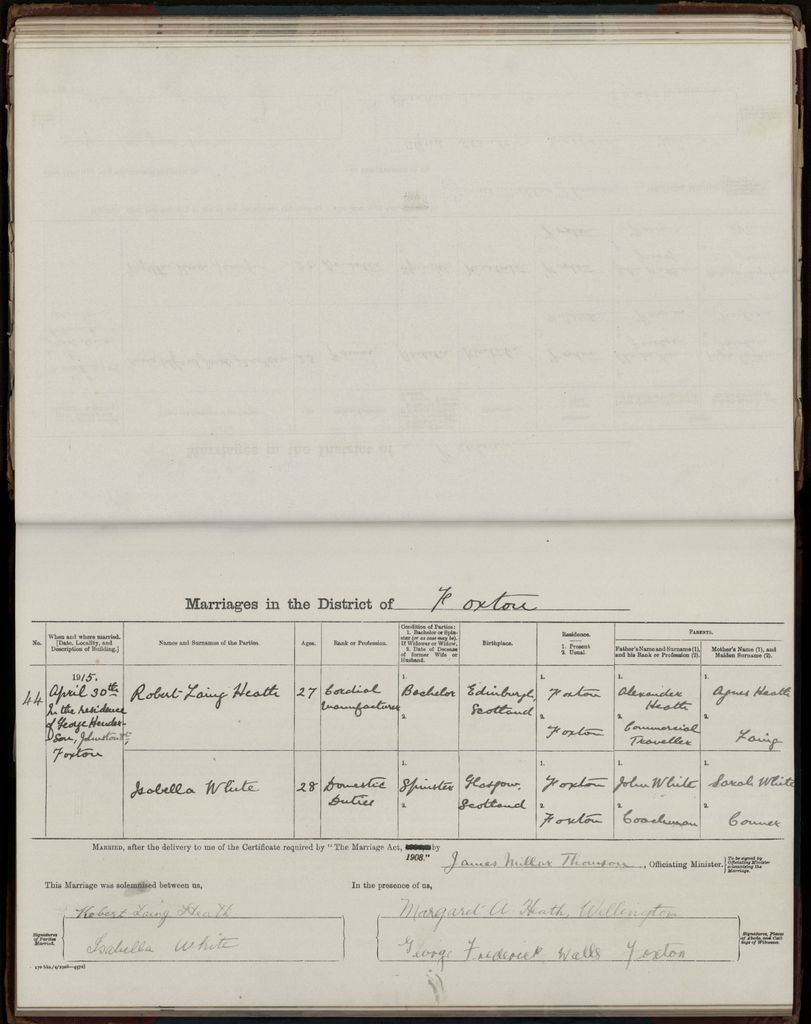 Marriages in the District of Foxton
No.
When and where married. [Date, Locality, and Description of Building.]
Names and Surnames of the Parties.
Ages.
Rank or Profession.
Condition of Parties: 1. Bachelor or Spinster (or as case may be). If Widower or Widow, 2. Date of Decease of former Wife or Husband.
Birthplace.
Residence. 1. Present 2. Usual.
PARENTS.
Father's Name and Surname (1), and his Rank or Profession (2).
Mother's Name (1), and Maiden Surname (2).
44
1915.
April 30th
In the residence
of George Hender-
son, Johnston St,
Foxton
Robert Laing Heath
27
Cordial
Manufacturer
1.
Bachelor
2.
Edinburgh,
Scotland
1.
Foxton
2.
Foxton
1.
Alexander
Heath
2.
Commercial
Traveller
1.
Agnes Heath
2.
Laing
Isabella White
28
Domestic
Duties
1.
Spinster
2.
Glasgow,
Scotland
1.
Foxton
2.
Foxton
1.
John White
2.
Coachman
1.
Sarah White
2.
Conner
MARRIED, after the delivery to me of the Certificate required by "The Marriage Act, by
1908."
James Millar Thomson, Officiating Minister.
[To be signed by Officiating Minister solemnizing the Marriage.
This Marriage was solemnised between us,
In the presence of us,
Signatures of Parties Married.
Robert Laing Heath
Isabella White
Margaret A Heath, Wellington
George Frederick Walls Foxton
Signatures, Places of Abode, and Callings of Witnesses.